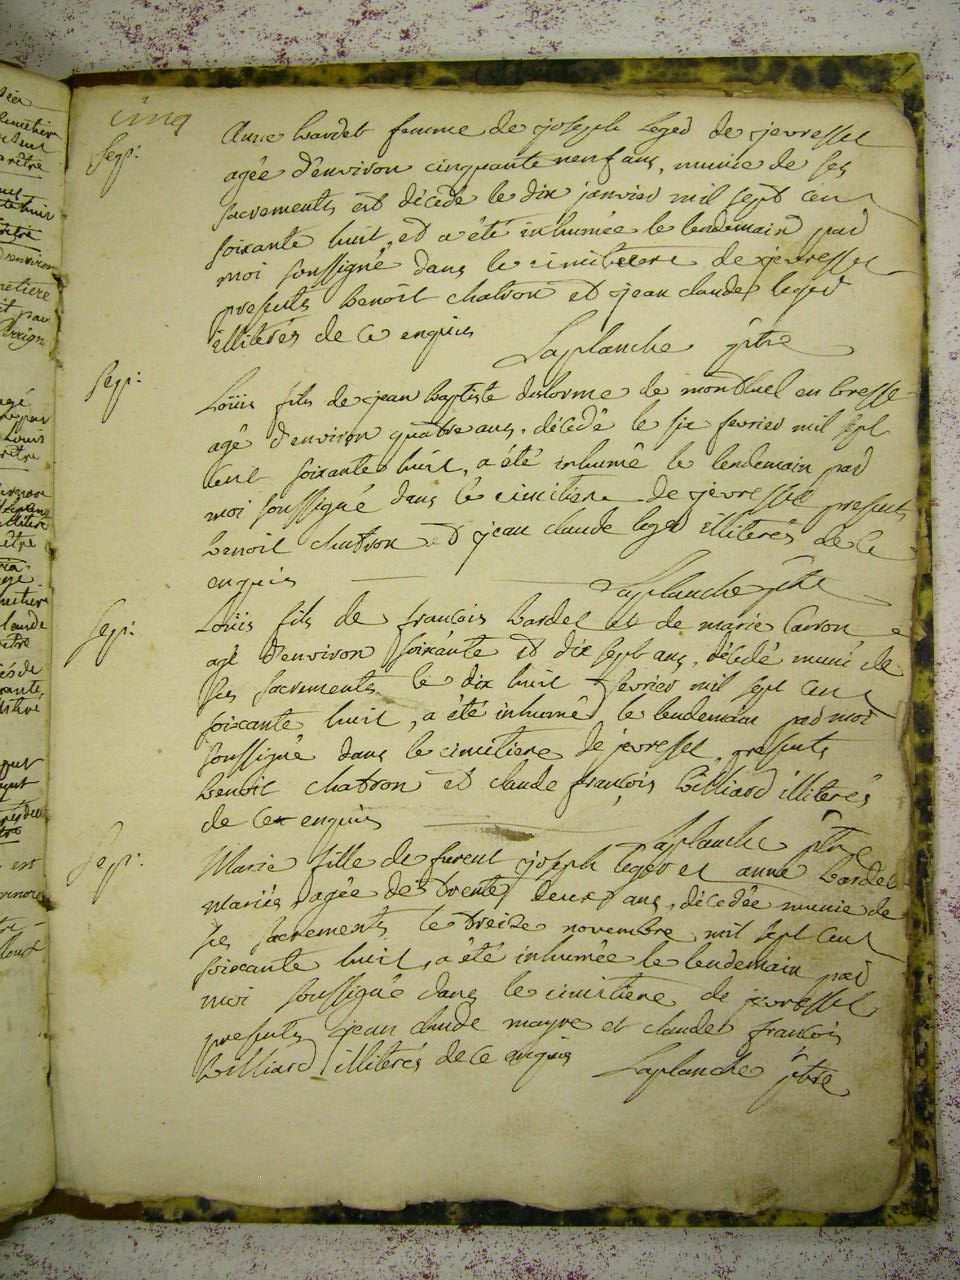 cinq
Sep:
Anne Bardet femme de joseph leged de jevressel
agée d'environ cinquante neuf ans, munie de ses
sacrements est décédé le dix janvier mil sept cent
soixante huit, et a été inhumée le lendemain par
moi soussigné dans le cimitiere de jevressel
presents benoît chatron et jean claude leger
illiterés de ce enquis
Laplanche ptre
Sep:
Loüis fils de jean baptiste delorme de montluel en bresse
agé d'environ quatre ans, décédé le six fevrier mil sept
cent soixante huit, a été inhumé le lendemain par
moi soussigné dans le cimitiere de jevressel presents
benoit chatron et jean claude leger illiterés de ce
enquis
Laplanche ptre
Sep:
Loüis fils de francois bardet et de marie carron
agé d'environ soixante et dix sept ans, décédé muni de
ses sacrements le dix huit fevrier mil sept cent
soixante huit, a été inhumé le lendemain par moi
soussigné dans le cimitiere de jevressel, presents
benoit chatron et claude françois billiard illiterés
de ce enquis
Laplanche ptre
Sep:
Marie fille de furent joseph leger et anne bardet
mariés, agée de trente deux ans, décedée munie de
ses sacrements le treize novembre mil sept cent
soixante huit, a été inhumée le lendemain par
moi soussigné dans le cimitiere de jevressel
presents jean claude mayre et claude francois
billiard illiterés de ce enquis
Laplanche ptre